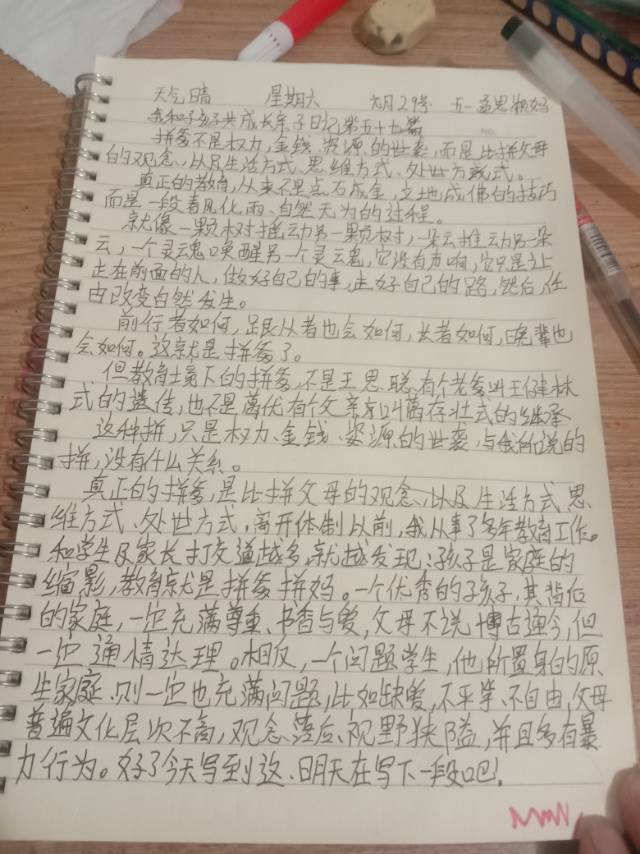 天气晴 星期六 六月29号 五一孟思颖妈
我和孩子共成长亲子日记第五十五篇
拼爹不是权力,金钱、资源的世袭,而是比拼父母
的观念、以及生活方式、思维方式、处世方式。
真正的教育,从来不是点石成金,立地成佛的技巧
而是一段春风化雨、自然无为的过程。
就像一颗树摇动另一颗树,一朵云推动另一朵
云,一个灵魂唤醒另一个灵魂,它没有声响,它只是让
走在前面的人,做好自己的事,走好自己的路,然后,任
由改变自然发生。
前行者如何,跟从者也会如何,长者如何,晚辈也
会如何。这就是拼爹了。
但教育境下的拼爹,不是王思聪有个老爹叫王健林
式的遗传,也不是离优有个父亲叫离存壮式的继承
这种拼,只是权力、金钱、资源的世袭,与我所说的
拼,没有什么关系。
真正的拼爹,是比拼父母的观念、以及生活方式思
维方式、处世方式,离开体制以前,我从事了多年教育工作。
和学生及家长打交道越多,就越发现:孩子是家庭的
缩影,教育就是拼爹拼妈。一个优秀的孩子,其背后
的家庭,一定充满尊重、书香与爱,父母不说博古通今,但
一定通情达理。相反,一个问题学生,他所置身的原
生家庭,则一定也充满问题,比如缺爱,不平等、不自由,父母
普遍文化层次不高,观念落后、视野狭隘,并且多有暴
力行为。好了今天写到这、明天在写下一段吧!